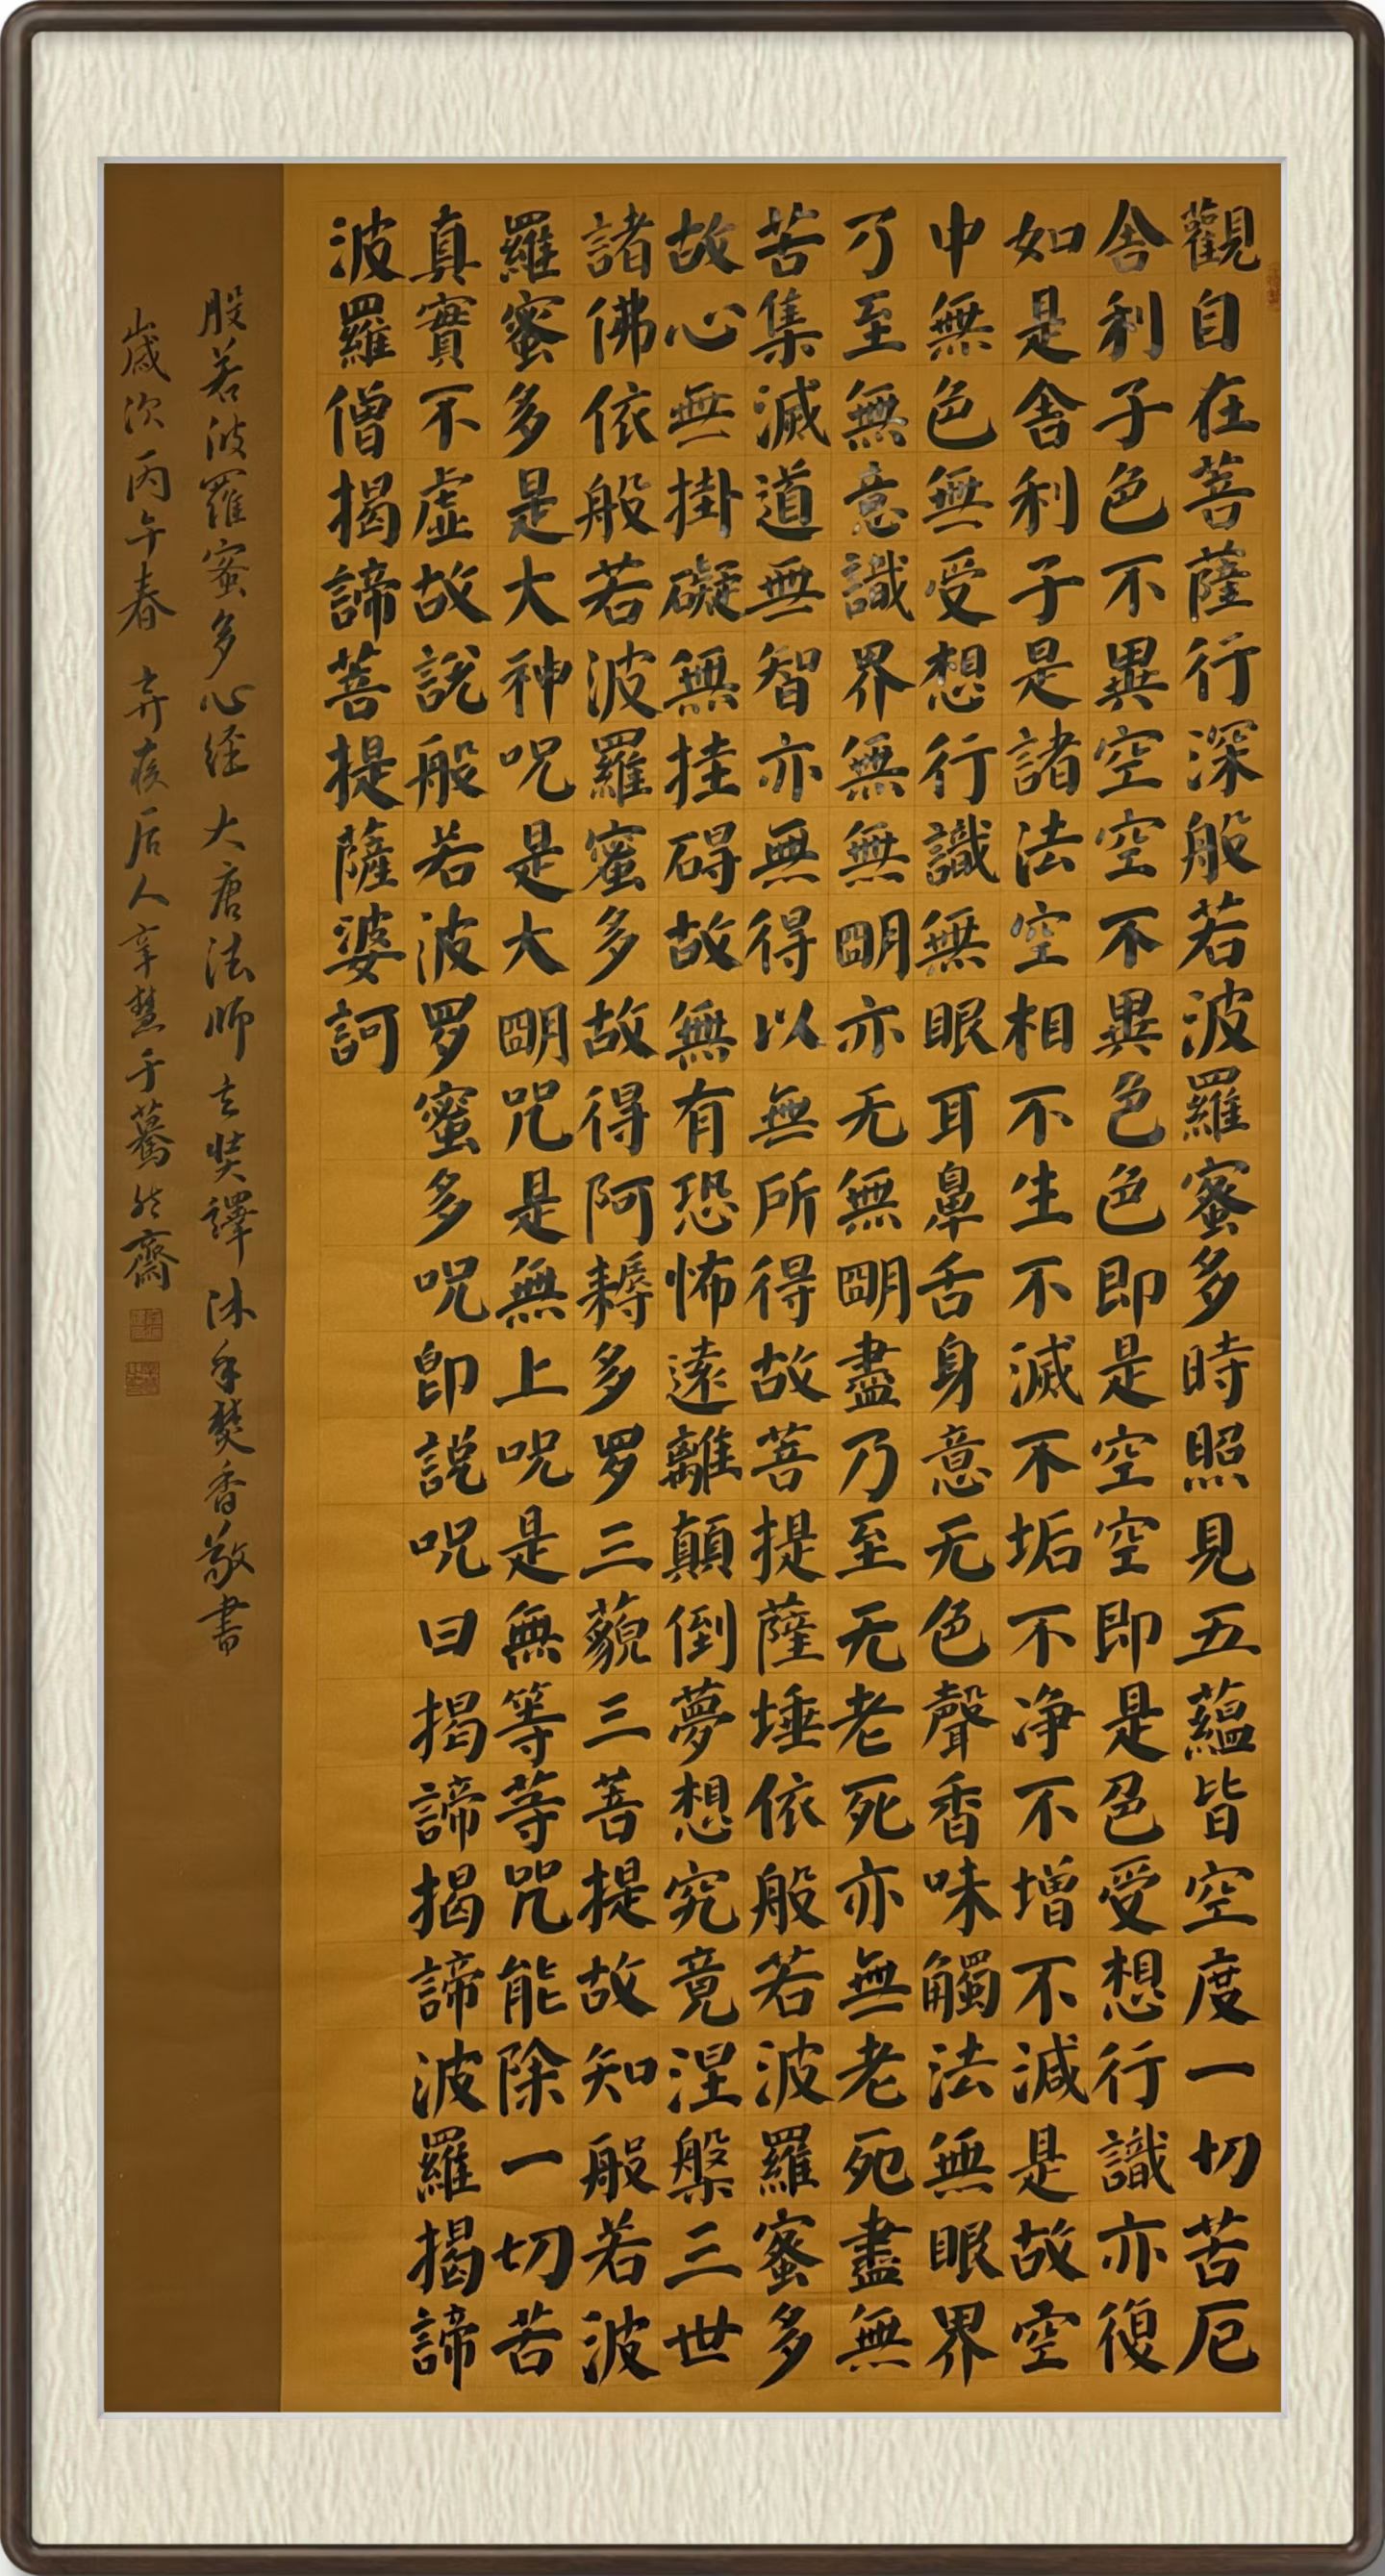 觀自在菩薩行深般若波羅蜜多時照見五蘊皆空度一切苦厄
舍利子色不異空空不異色色即是空空即是色受想行識亦復
如是舍利子是諸法空相不生不滅不垢不净不增不減是故空
中無色無受想行識無眼耳鼻舌身意无色聲香味觸法無眼界
乃至無意識界無無明亦无無明盡乃至无老死亦無老死盡無
苦集滅道無智亦無得以無所得故菩提薩埵依般若波羅蜜多
故心無掛礙無挂碍故無有恐怖遠離顛倒夢想究竟涅槃三世
諸佛依般若波羅蜜多故得阿耨多罗三藐三菩提故知般若波
羅蜜多是大神咒是大明咒是無上咒是無等等咒能除一切苦
真實不虛故說般若波罗蜜多咒即説咒曰揭諦揭諦波羅揭諦
波羅僧揭諦菩提薩婆訶
般若波羅蜜多心经大唐法師玄奘譯沐手焚香敬書
歲次丙午春弃疾后人辛慧于驀然齋